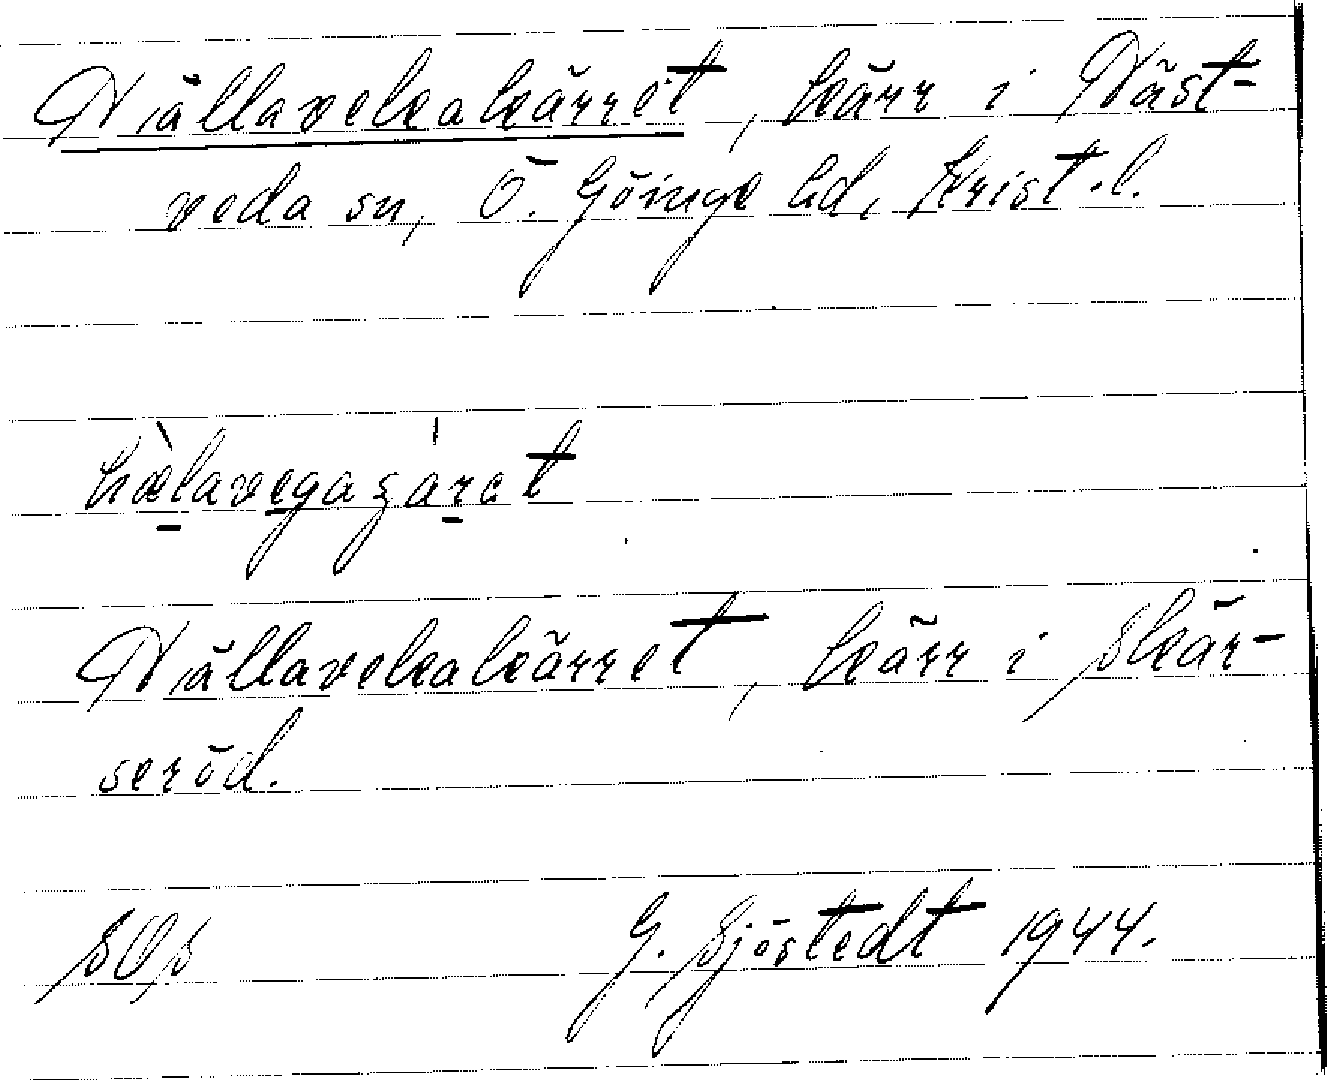 Hällavekakärret, kärr i Häst-
veda sn, Ö. Göinge hd, Krist. l.
hælavegaʒarət
Hällavekakärret, kärr i Skär-
seröd.
SOS G. Sjöstedt 1944.